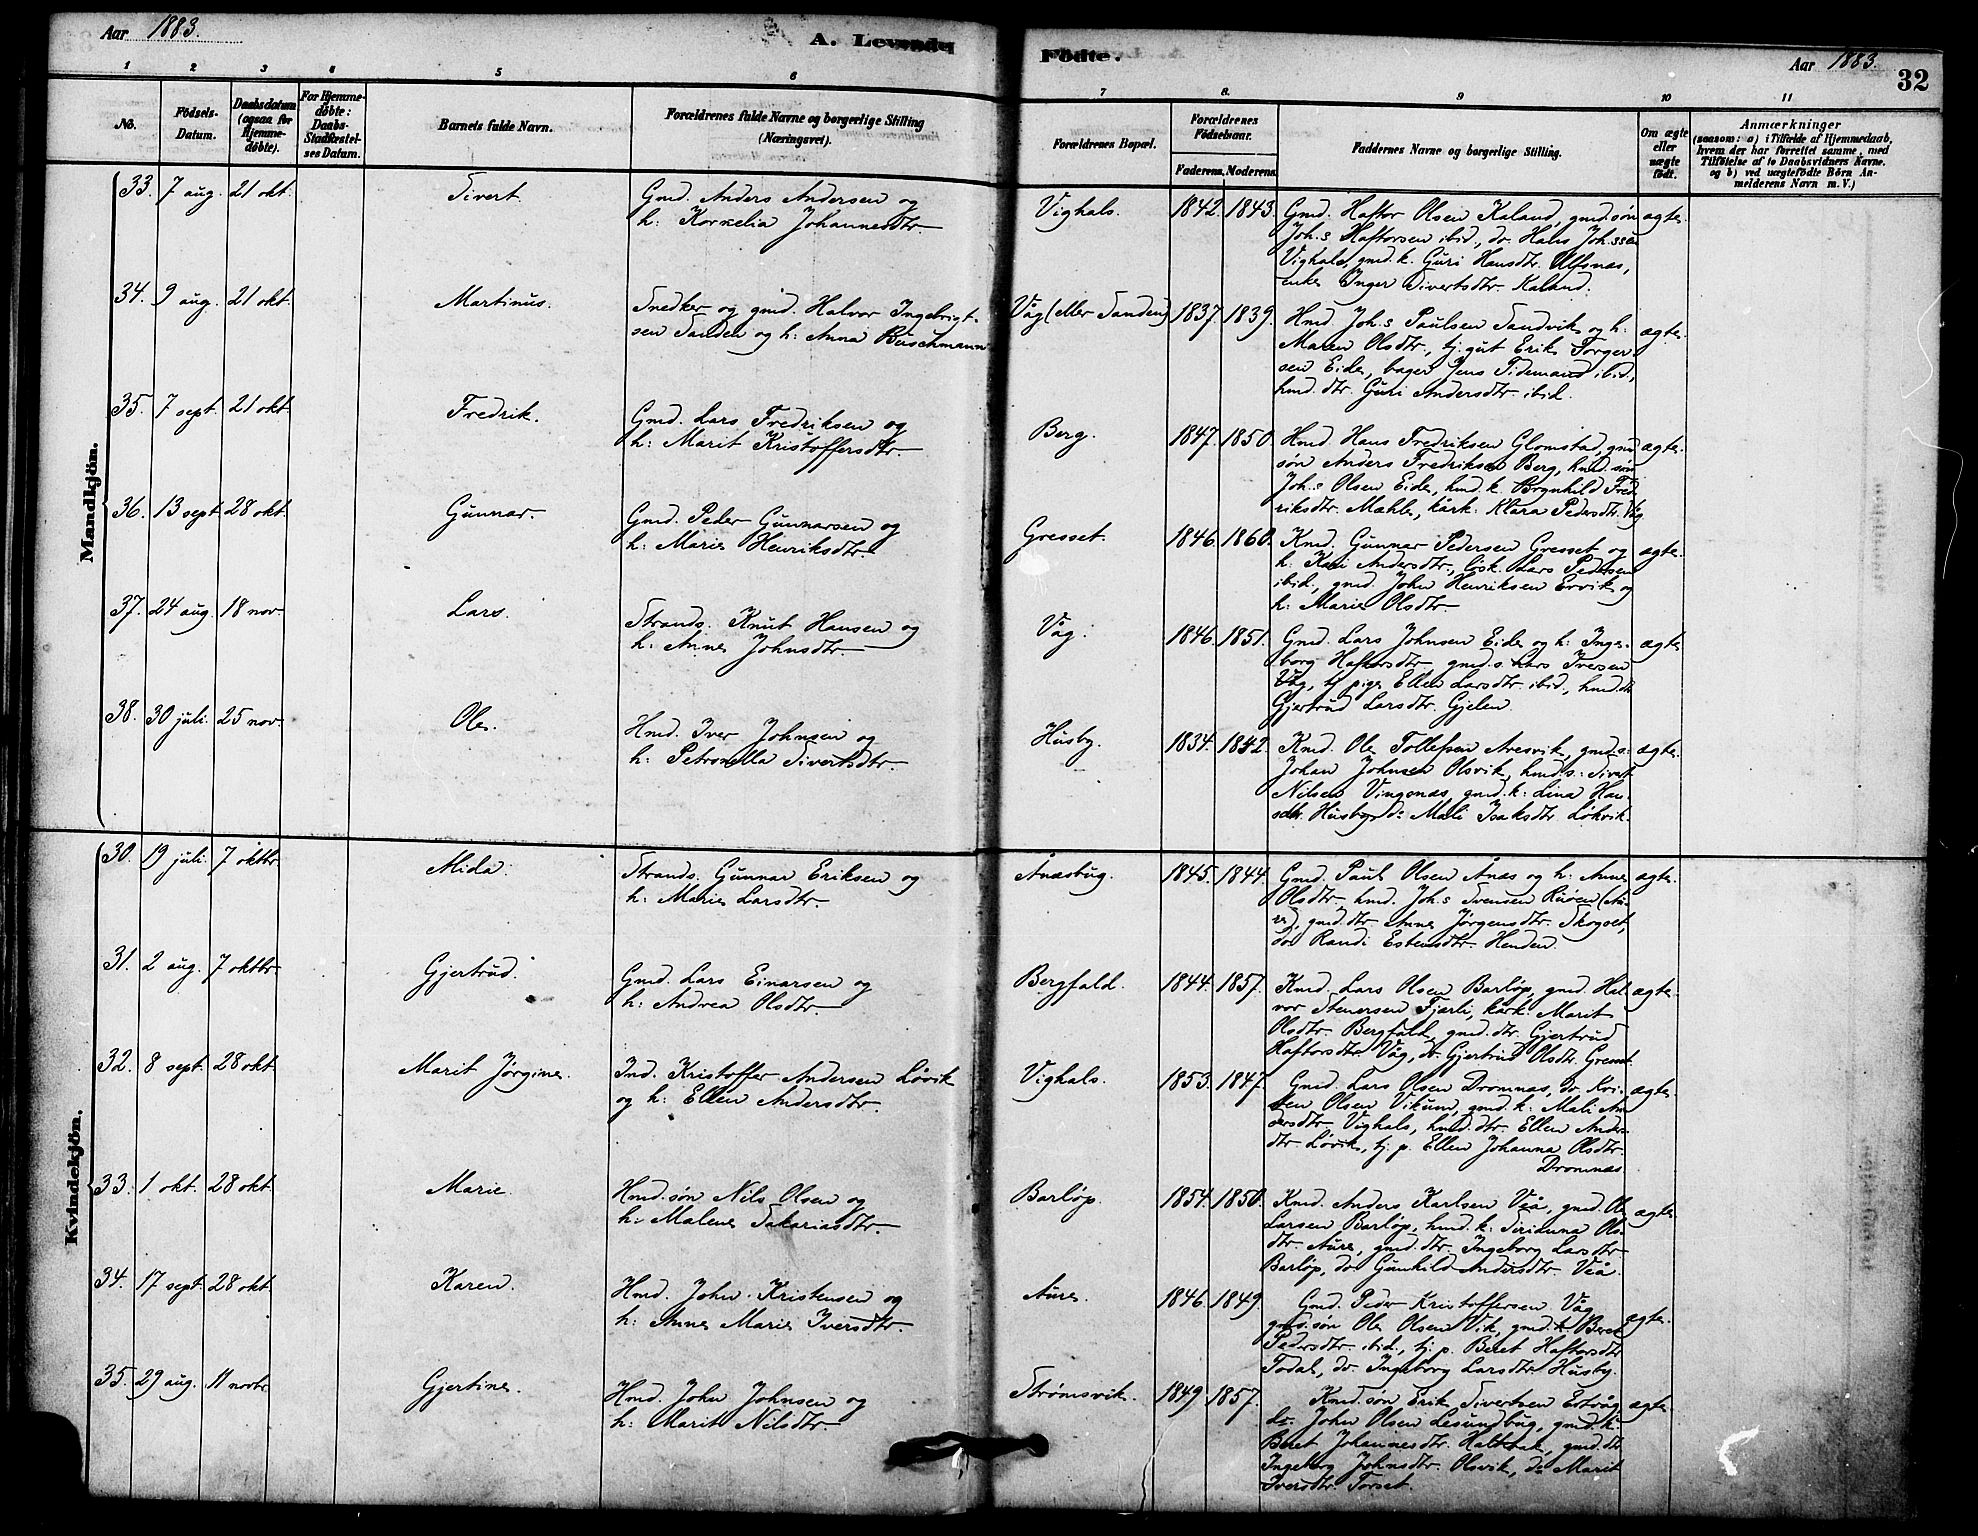 Aar 1883.
A. Levende Födte.
Aar 1883.
32
1 2 3 4 5 6 7 8. 9 10 11
No.
Födsels-Datum.
Daabsdatum (ogsaa for Hjemme-döbte).
For Hjemme-döbte: Daabs-Stadfæstel-ses Datum.
Barnets fulde Navn.
Forældrenes fulde Navne og borgerlige Stilling
(Næringsvei).
Forældrenes Bopæl.
Forældrenes Födselsaar.
Faderens. Moderens.
Faddernes Navne og borgerlige Stilling.
Om ægte eller uægte födt.
Anmærkninger
(saasom: a) i Tilfælde af Hjemmedaab,
hvem der har forrettet samme, med
Tilföielse af to Daabsvidners Navne.
og b) ved uægtefödte Börn An-
melderens Navn m. V.)
Mandkjön.
33. 7 aug. 21 okt. Sivert Gmd. Anders Andersen og
h: Kornelia Johannesdtr
Vighals. 1842. 1843. Gmd. Haftor Olsen Kaland, gmd. søn ægte.
Joh.s Haftorsen ibid., do. Hals Joh.ssen
Vighals, gmd. k. Guri Hansdtr. Ulfsnæs,
enke Inger Sivertsdtr. Kaland.
34. 9 aug. 21 okt. Martinus. Snedker og gmd. Halvor Ingebrigt-
sen Sanden og h: Anna Buschmann
Våg (eller Sanden) 1837. 1839. Hmd. Joh.s Paulsen Sandvik og h: ægte.
Maren Olsdtr., tj. gut Erik Torger-
sen Eide, bager Jens Tidemand ibid.,
hmd. dtr. Guri Andersdtr. ibid.
35. 7 sept. 21 okt. Fredrik. Gmd. Lars Fredriksen og
h: Marit Kristoffersdtr.
Berg. 1847. 1850. Hmd. Hans Fredriksen Glomstad, gmd ægte.
søn Anders Fredriksen Berg, hmd. søn
Joh.s Olsen Eide, hmd. k. Brynhild Fred
riksdtr. Mæhle, kårk. Klara Pedersdtr. Våg
36. 13 sept 28 okt. Gunnar. Gmd. Peder Gunnarsen og
h: Marie Henriksdtr
Gresset. 1846. 1860. Kmd. Gunnar Pedersen Gresset og ægte.
h: Kari Andersdtr., Lars Pedersen
ibid., gmd. John Henriksen Ervik og
h: Marie Olsdtr.
37. 24 aug. 18 nov. Lars. Strands. Knut Hansen og
h: Anne Johnsdtr.
Våg. 1846. 1851. Gmd. Lars Johnsen Eide og h: Inge- ægte.
borg Haftorsdtr, gmd. s. Lars Iversen
Våg, tj. pige Ellen Larsdtr. ibid., hmd. dtr
Gjertrud Larsdtr. Gjelen.
38. 30 juli. 25 nov. Ole. Hmd. Iver Johnsen og
h: Petronella Sivertsdtr.
Husby. 1834. 1842. Kmd. Ole Tollefsen Aresvik, gmd. s: ægte.
Johan Johnsen Olsvik, hmd. s: Sivert
Nilsen Vingenæs, gmd. k: Lina Han-
sdtr. Husby, do Mali Isaksdtr. Løkvik.
Kvindekjön.
30. 19 juli. 7 oktbr. Mida. Strands. Gunnar Eriksen og
h: Marie Larsdtr.
Ånæsbug. 1845. 1844. Gmd. Paul Olsen Ånæs og h: Anne ægte.
Olsdtr, hmd. Joh.s Svensen Ruøen (Au-
re), gmd. dtr. Anne Jørgensdtr. Skogset,
do Randi Estensdtr. Henden.
31. 2 aug. 7 oktbr Gjertrud. Gmd. Lars Einarsen og
h: Andrea Olsdtr.
Bergfald. 1844. 1857. Kmd. Lars Olsen Barløp, gmd. Hal- ægte.
vor Stenersen Fjærli, kårk. Marit
Olsdtr. Bergfald, gmd. dtr. Gjertrud
Haftorsdtr. Våg, do Gjertrud Olsdtr.
32. 8 sept. 28 okt. Marit Jørgine. Ind. Kristoffer Andersen Løvik
og h: Ellen Andersdtr.
Vighals. 1853. 1847. Gmd. Lars Olsen Dromnæs, do Kri- ægte.
sten Olsen Vikum, gmd. k: Mali An
dersdtr. Vighals, hmd. dtr. Ellen Anders-
dtr. Løvik, tj. p. Ellen Johanna Olsdtr.
Dromnæs
33. 1 okt. 28 okt. Marie. Hmd. søn Nils Olsen og
h: Malene Sakariasdtr.
Barløp. 1854. 1850. Kmd. Anders Karlsen Viå, gmd. Ole ægte.
Larsen Barløp, hmd. k: Sirianna Ols-
dtr. Aure, gmd. dtr. Ingeborg Larsdtr
Barløp, do Gunhild Andersdtr. Viå.
34. 17 sept. 28 okt. Karen. Hmd. John Kristensen og
h: Anne Marie Iversdtr.
Aure. 1846. 1849. Gmd. Peder Kristoffersen Våg ægte.
gmd. søn Ole Olsen Vik, gmd. k. Beret
Pedersdtr. ibid., tj. p. Beret Haftorsdtr
Todal, do Ingeborg Larsdtr. Husby.
35. 29 aug. 11 novbr. Gjertine. Hmd. John Johnsen og
h: Marit Nilsdtr.
Strømsvik. 1849. 1857. Kmd. søn Erik Sivertsen Ertvåg ægte
do. John Olsen Lesundbug, gmd. k.
Beret Johannesdtr. gmd. dtr
Ingeborg Johnsdtr. Olsvik, do Marit
Iversdtr. Torset.